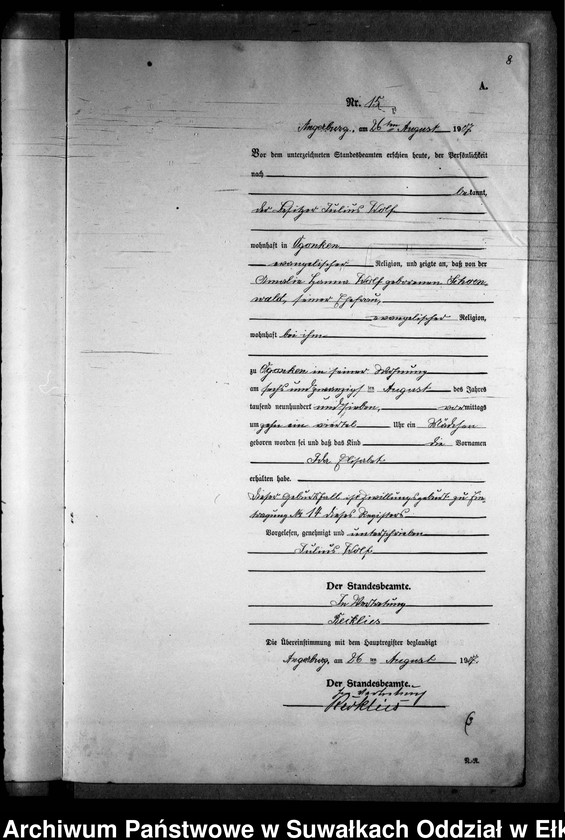 8
A.
Nr. 15
Angerburg, am 26ten August 1907.
Vor dem unterzeichneten Standesbeamten erschien heute, der Persönlichkeit
nach
bekannt,
der Besitzer Julius Wolf
wohnhaft in Ogonken
evangelischer Religion, und zeigte an, daß von der
Amalie Hanna Wolf geborenen Schoen
wald, seiner Ehefrau,
evangelischer Religion,
wohnhaft bei ihm
zu Ogonken in seiner Wohnung
am sechs und zwanzigsten August des Jahres
tausend neunhundert und sieben, vormittags
um zehn ein viertel Uhr ein Mädchen
geboren worden sei und daß das Kind die Vornamen
Ida Elisabet
erhalten habe.
Dieser Geburtsfall ist Zwillingsgeburt zu Ein
tragung No 14 dieses Registers
Vorgelesen, genehmigt und unterschrieben
Julius Wolf
Der Standesbeamte.
In Vertretung
Die Übereinstimmung mit dem Hauptregister beglaubigt
Angerburg, am 26ten August 1907.
Der Standesbeamte.
In Vertretung
Archiwum Państwowe w Suwałkach Oddział w Ełk